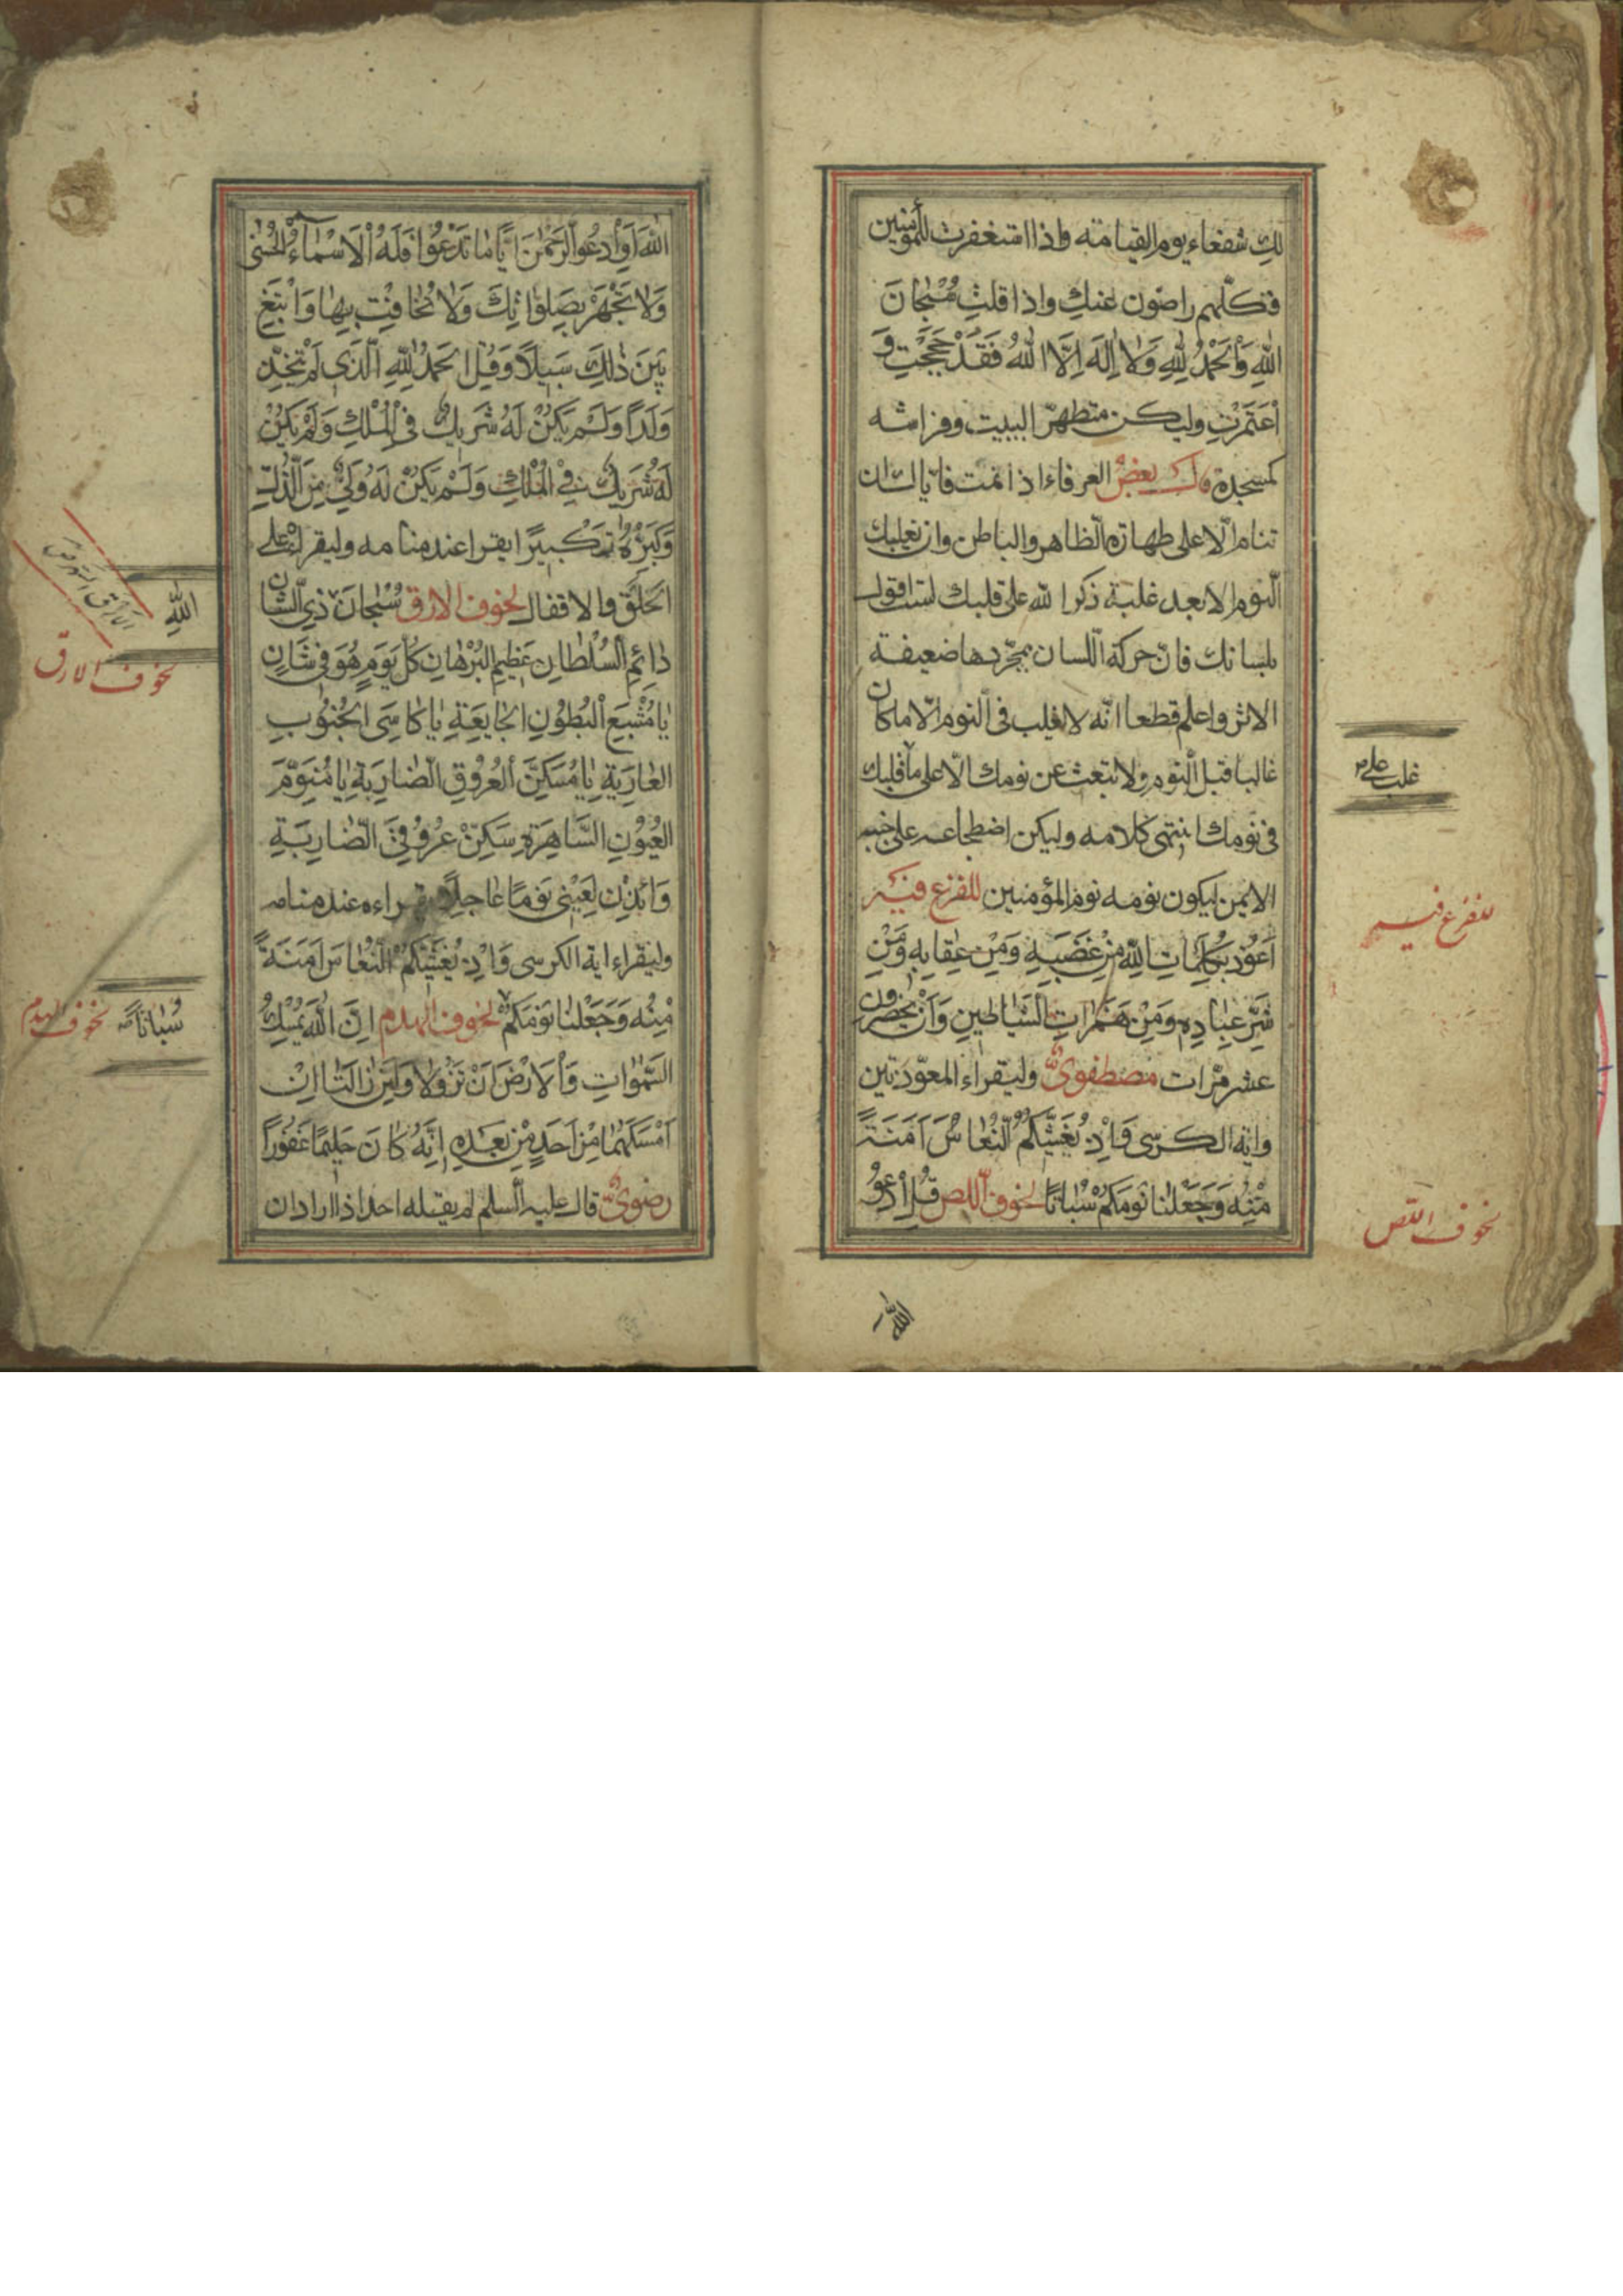 لكِ شفعاء يوم القيامة واذا استغفرت للمؤمنين
فكلّهم راضون عنكِ واذا قلتِ سُبْحانَ
اللهِ وَالْحَمْدُ لِلّهِ وَلا اِلهَ اِلَّا اللهُ فَقَدْ حَجَجْتِ وَ
اعْتَمَرْتِ وليكن متطهّرا لبيت وفراشه
كمسجده قال بعض العرفاء اذا نمت فاياك ان
تنام الّا على طهارة الظاهر والباطن وان يغلبك
النّوم الا بعد غلبة ذكر الله على قلبك لست اقول
بلسانك فانّ حركة اللسان بمجرّدها ضعيفة
الاثر واعلم قطعا انّه لا يغلب فى النوم الّا ما كان
غالبا قبل النوم ولا تبعث عن نومك الّا على ما قلبك
فى نومك انتهى كلامه وليكن اضطجاعه على جنبه
الايمن ليكون نومه نوم المؤمنين للفزع فيه
اَعُوذُ بِكَلِماتِ اللهِ مِنْ غَضَبِهِ وَمِنْ عِقابِهِ وَمِنْ
شَرِّ عِبادِهِ وَمِنْ هَمَزاتِ الشَّياطينِ وَاَنْ يَحْضُرُونِ
عشر مرّات مصطفوىٌّ وليقراء المعوّذتين
واية الكرسى وَاِذْ يُغَشّيكُمُ النُّعاسَ اَمَنَةً
مِنْهُ وَجَعَلْنا نَوْمَكُمْ سُباتًا لخوف اللص قُلِ ادْعُوا
غلب على
للفزع فيه
لخوف اللص
الله
اللهَ اَوِ ادْعُوا الرَّحْمنَ اَيًّا ما تَدْعُوا فَلَهُ الْاَسْماءُ الْحُسْنى
وَلا تَجْهَرْ بِصَلوتِكَ وَلا تُخافِتْ بِها وَابْتَغِ
بَيْنَ ذلِكَ سَبيلًا وَقُلِ الْحَمْدُ لِلّهِ الَّذى لَمْ يَتَّخِذْ
وَلَدًا وَلَمْ يَكُنْ لَهُ شَريكٌ فِى الْمُلْكِ وَلَمْ يَكُنْ
لَهُ شَريكٌ فِى الْمُلْكِ وَلَمْ يَكُنْ لَهُ وَلِىٌّ مِنَ الذُّلِّ
وَكَبِّرْهُ تَكْبيرًا يقرا عند منامه وليقرا على
الحلق والاقفال لخوف الارق سُبْحانَ ذِى الشَّانِ
دائِمِ السُّلْطانِ عَظيمِ الْبُرْهانِ كُلَّ يَوْمٍ هُوَ فى شَانٍ
يا مُشْبِعَ الْبُطُونِ الْجايِعَةِ يا كاسِىَ الْجُنُوبِ
الْعارِيَةِ يا مُسَكِّنَ الْعُرُوقِ الضّارِبَةِ يا مُنَوِّمَ
الْعُيُونِ السّاهِرَةِ سَكِّنْ عُرُوقِىَ الضّارِبَةِ
وَائْذَنْ لِعَيْنى نَوْمًا عاجِلًا يقراءه عند منامه
وليقراء اية الكرسى وَاِذْ يُغَشّيكُمُ النُّعاسَ اَمَنَةً
مِنْهُ وَجَعَلْنا نَوْمَكُمْ لخوف الهدم اِنَّ اللهَ يُمْسِكُ
السَّمواتِ وَالْاَرْضَ اَنْ تَزُولا وَلَئِنْ زالَتا اِنْ
اَمْسَكَهُما مِنْ اَحَدٍ مِنْ بَعْدِهِ اِنَّهُ كانَ حَليمًا غَفُورًا
رضوىٌّ قال عليه السلم لم يقله احد اذا اراد ان
الله
لخوف الارق
سُباتًا
لخوف الهدم